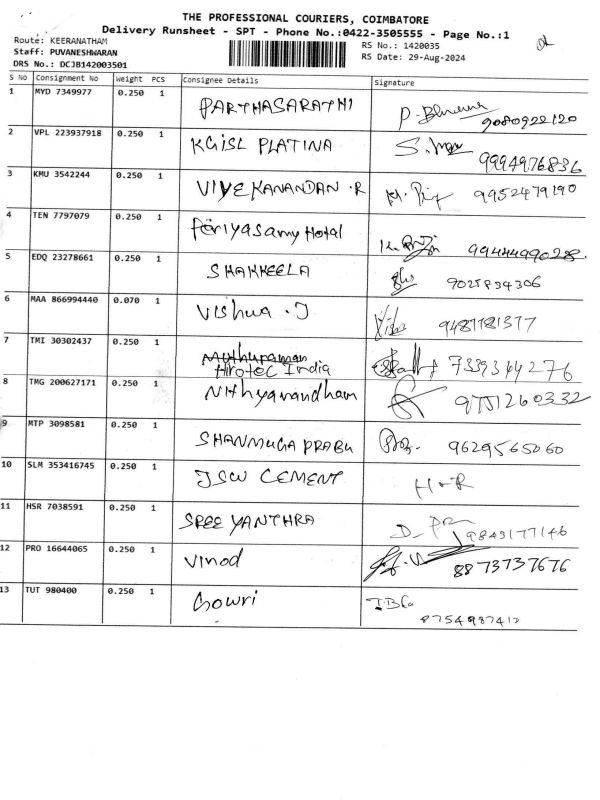 THE PROFESSIONAL COURIERS, COIMBATORE
Delivery Runsheet - SPT - Phone No.:0422-3505555 - Page No.:1
Route: KEERANATHAM
RS No.: 1420035
Staff: PUVANESHWARAN
RS Date: 29-Aug-2024
DRS No.: DCJB142003501
S No Consignment No Weight PCS Consignee Details Signature
1 MYD 7349977 0.250 1 PARTHASARATHI
9080922120
2 VPL 223937918 0.250 1 KGISL PLATINA
9994976836
3 KMU 3542244 0.250 1 VIVEKANANDAN .R 9952479190
4 TEN 7797079 0.250 1 Periyasamy Hotal
9944499028
5 EDQ 23278661 0.250 1 SHAKKEELA
9025834306
6 MAA 866994440 0.070 1 Vishwa . J
7 TMI 30302437 0.250 1 Muthuraman
Hirotec India 7339344276
8 TMG 200627171 0.250 1 Nithyanandham
9 MTP 3098581 0.250 1 SHANMUGA PRABU 9629565060
10 SLM 353416745 0.250 1 JSW CEMENT
11 HSR 7038591 0.250 1 SREE YANTHRA
9843177146
12 PRO 16644065 0.250 1 Vinod
8873737676
13 TUT 980400 0.250 1 Gowri
8754987412